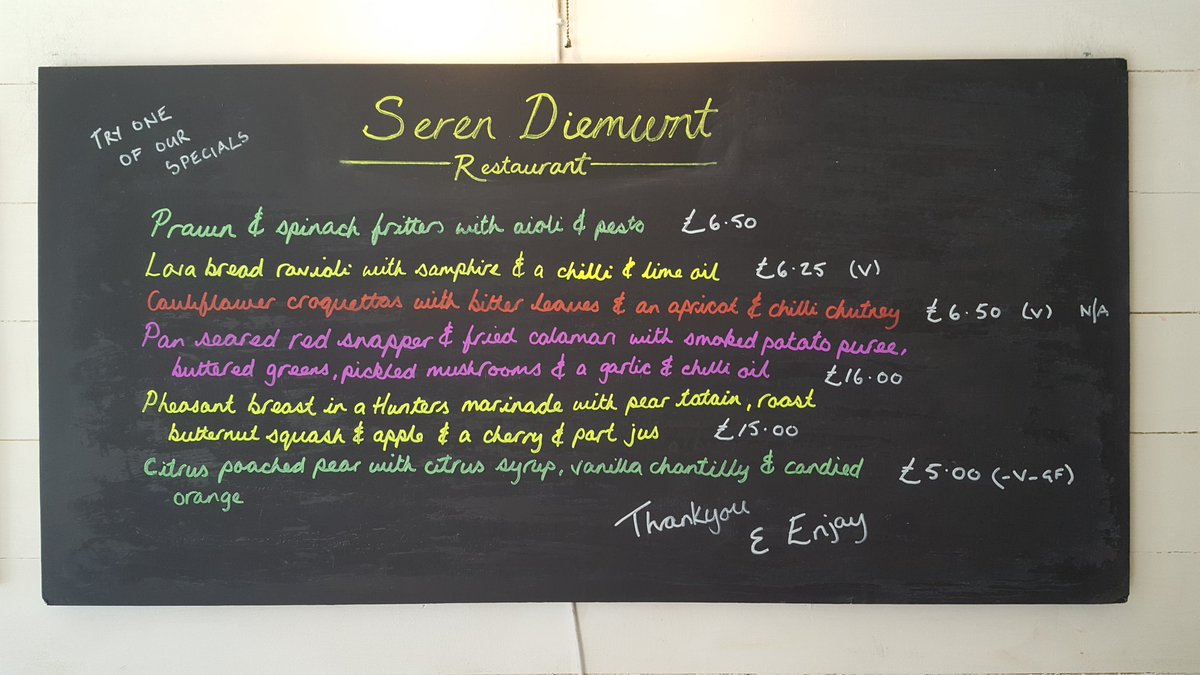 TRY ONE
OF OUR
SPECIALS
Seren Diemwnt
Restaurant
Prawn & spinach fritters with aioli & pesto £6.50
Lava bread ravioli with samphire & a chilli & lime oil £6.25 (V)
Cauliflower croquettas with bitter leaves & an apricot & chilli chutney £6.50 (V) N/A
Pan seared red snapper & fried calamari with smoked potato puree,
buttered greens, pickled mushrooms & a garlic & chilli oil £16.00
Pheasant breast in a Hunters marinade with pear tatain, roast
butternut squash & apple & a cherry & port jus £15.00
Citrus poached pear with citrus syrup, vanilla chantilly & candied £5.00 (-V-GF)
orange
Thankyou
& Enjoy